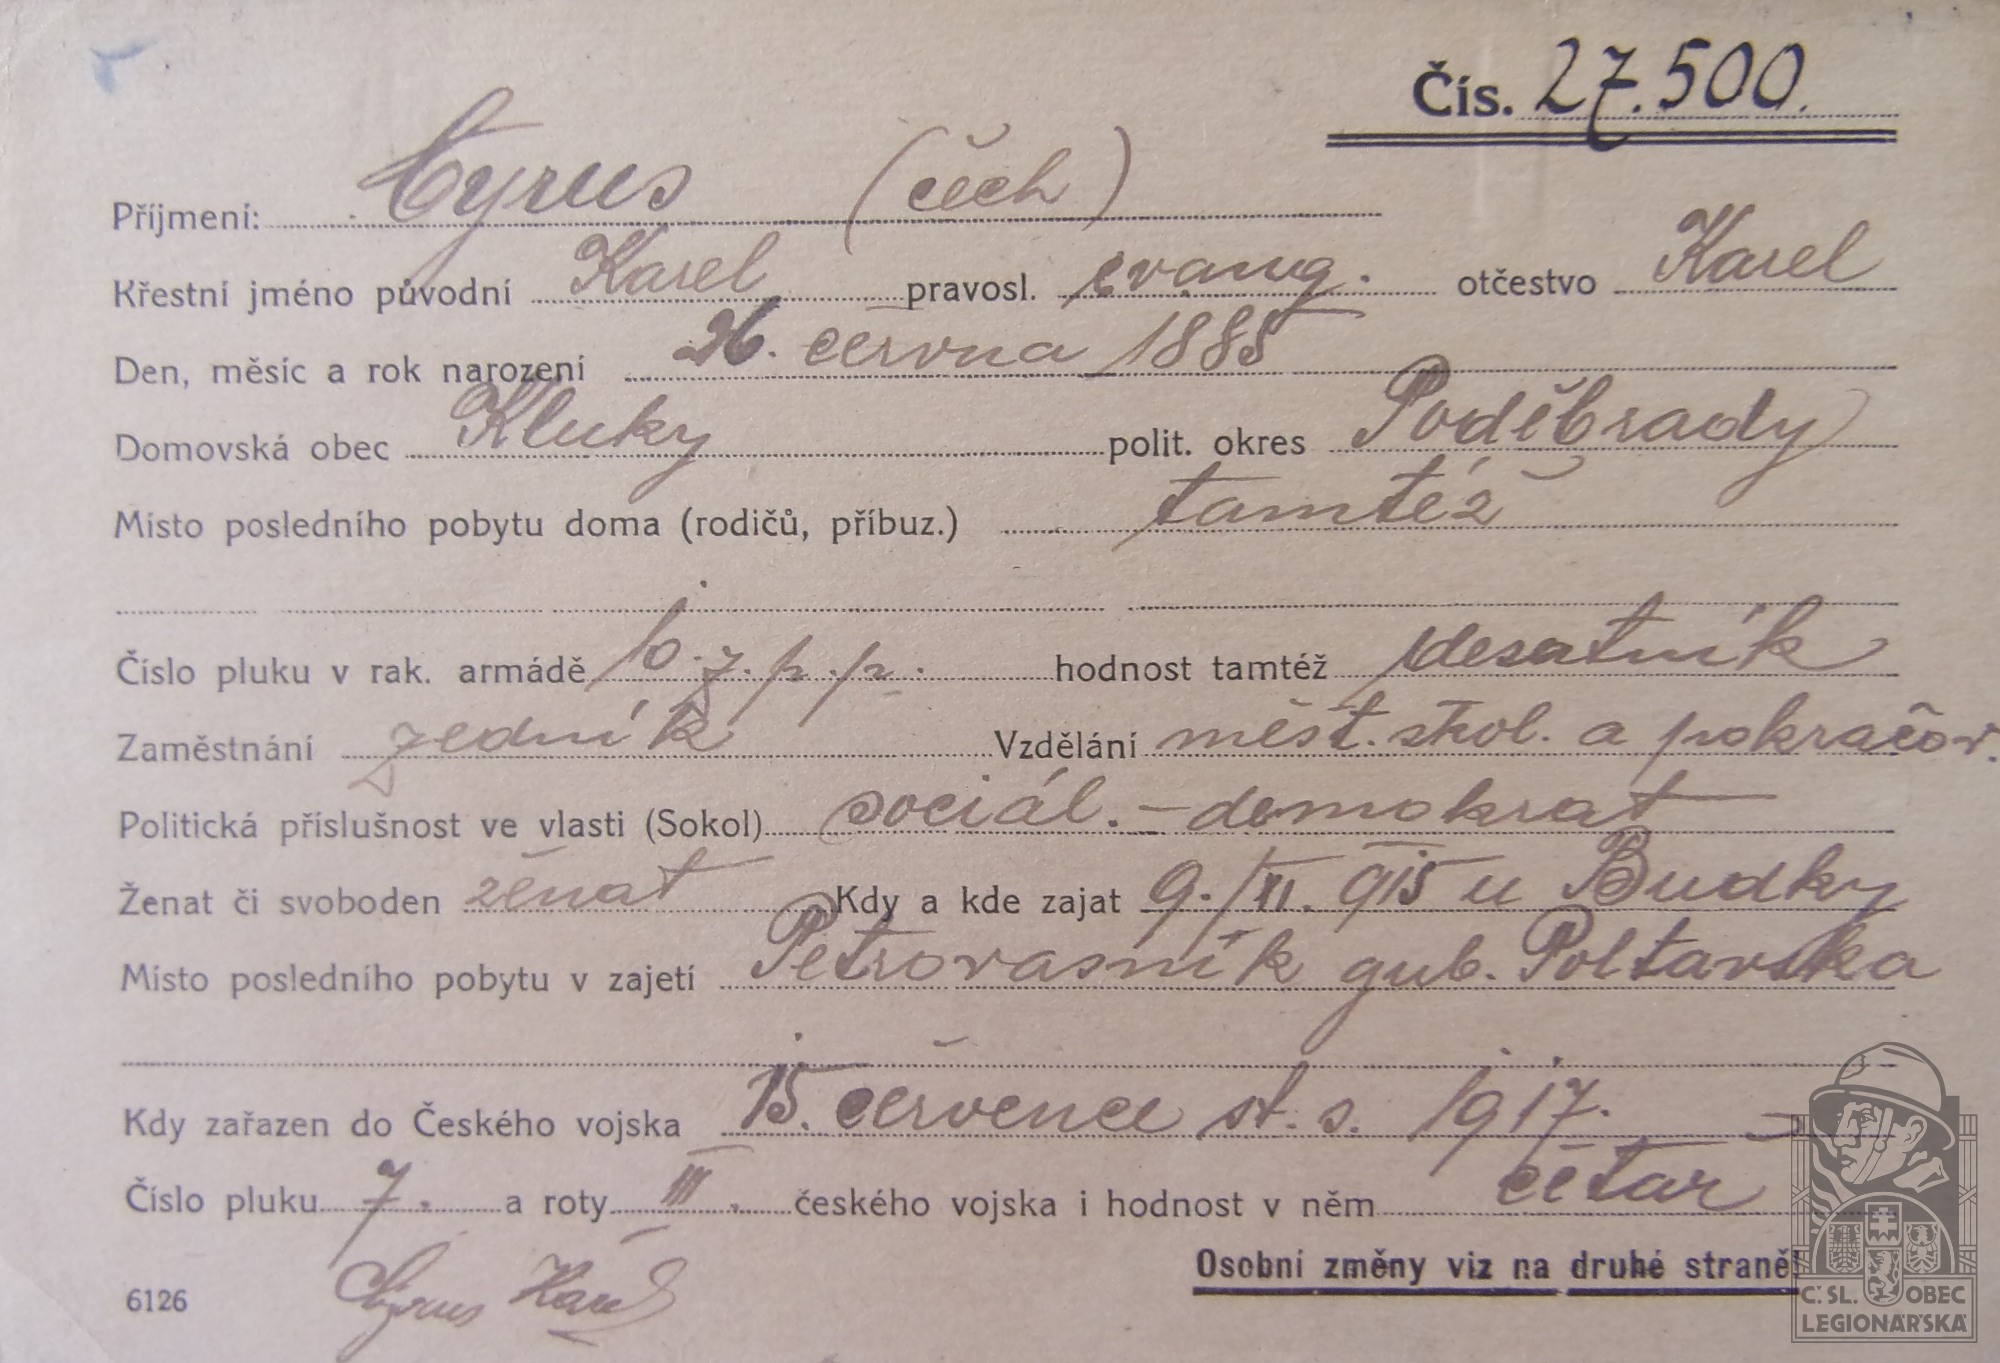 Čís. 27.500.
Příjmení: Cyrus (čech)
Křestní jméno původní Karel pravosl. evang. otčestvo Karel
Den, měsíc a rok narození 26. června 1885
Domovská obec Kluky polit. okres Poděbrady
Místo posledního pobytu doma (rodičů, příbuz.) tamtéž
Číslo pluku v rak. armádě 10. z. p. p. hodnost tamtéž desatník
Zaměstnání zedník Vzdělání měšt. škol. a pokračov.
Politická příslušnost ve vlasti (Sokol) sociál. - demokrat
Ženat či svoboden ženat Kdy a kde zajat 9./VI. 915 u Budky
Místo posledního pobytu v zajetí gub. Poltavska
Kdy zařazen do Českého vojska 15. července st. s. 1917.
Číslo pluku 7. a roty III. českého vojska i hodnost v něm četař
Osobní změny viz na druhé straně!
6126 Cyrus Karel
Č. SL. OBEC
LEGIONÁŘSKÁ